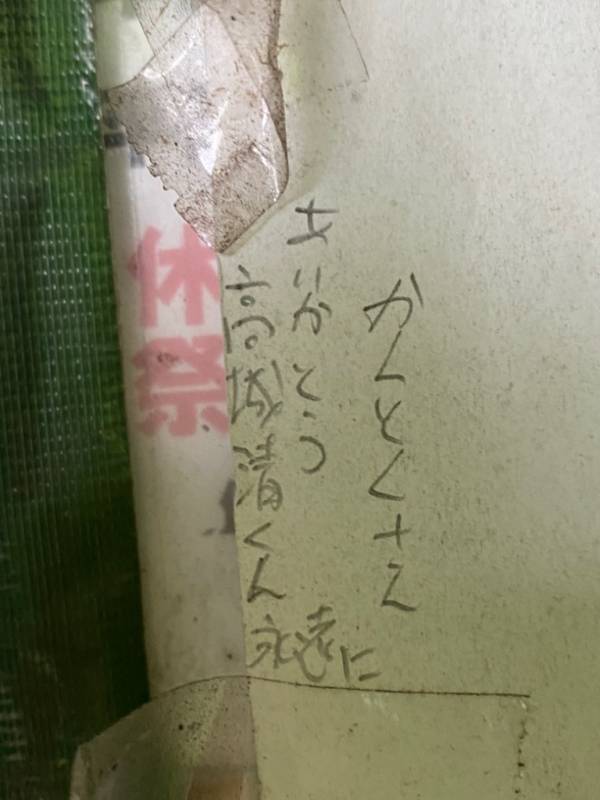 かんとくさん
ありがとう
高城清くん
永遠に